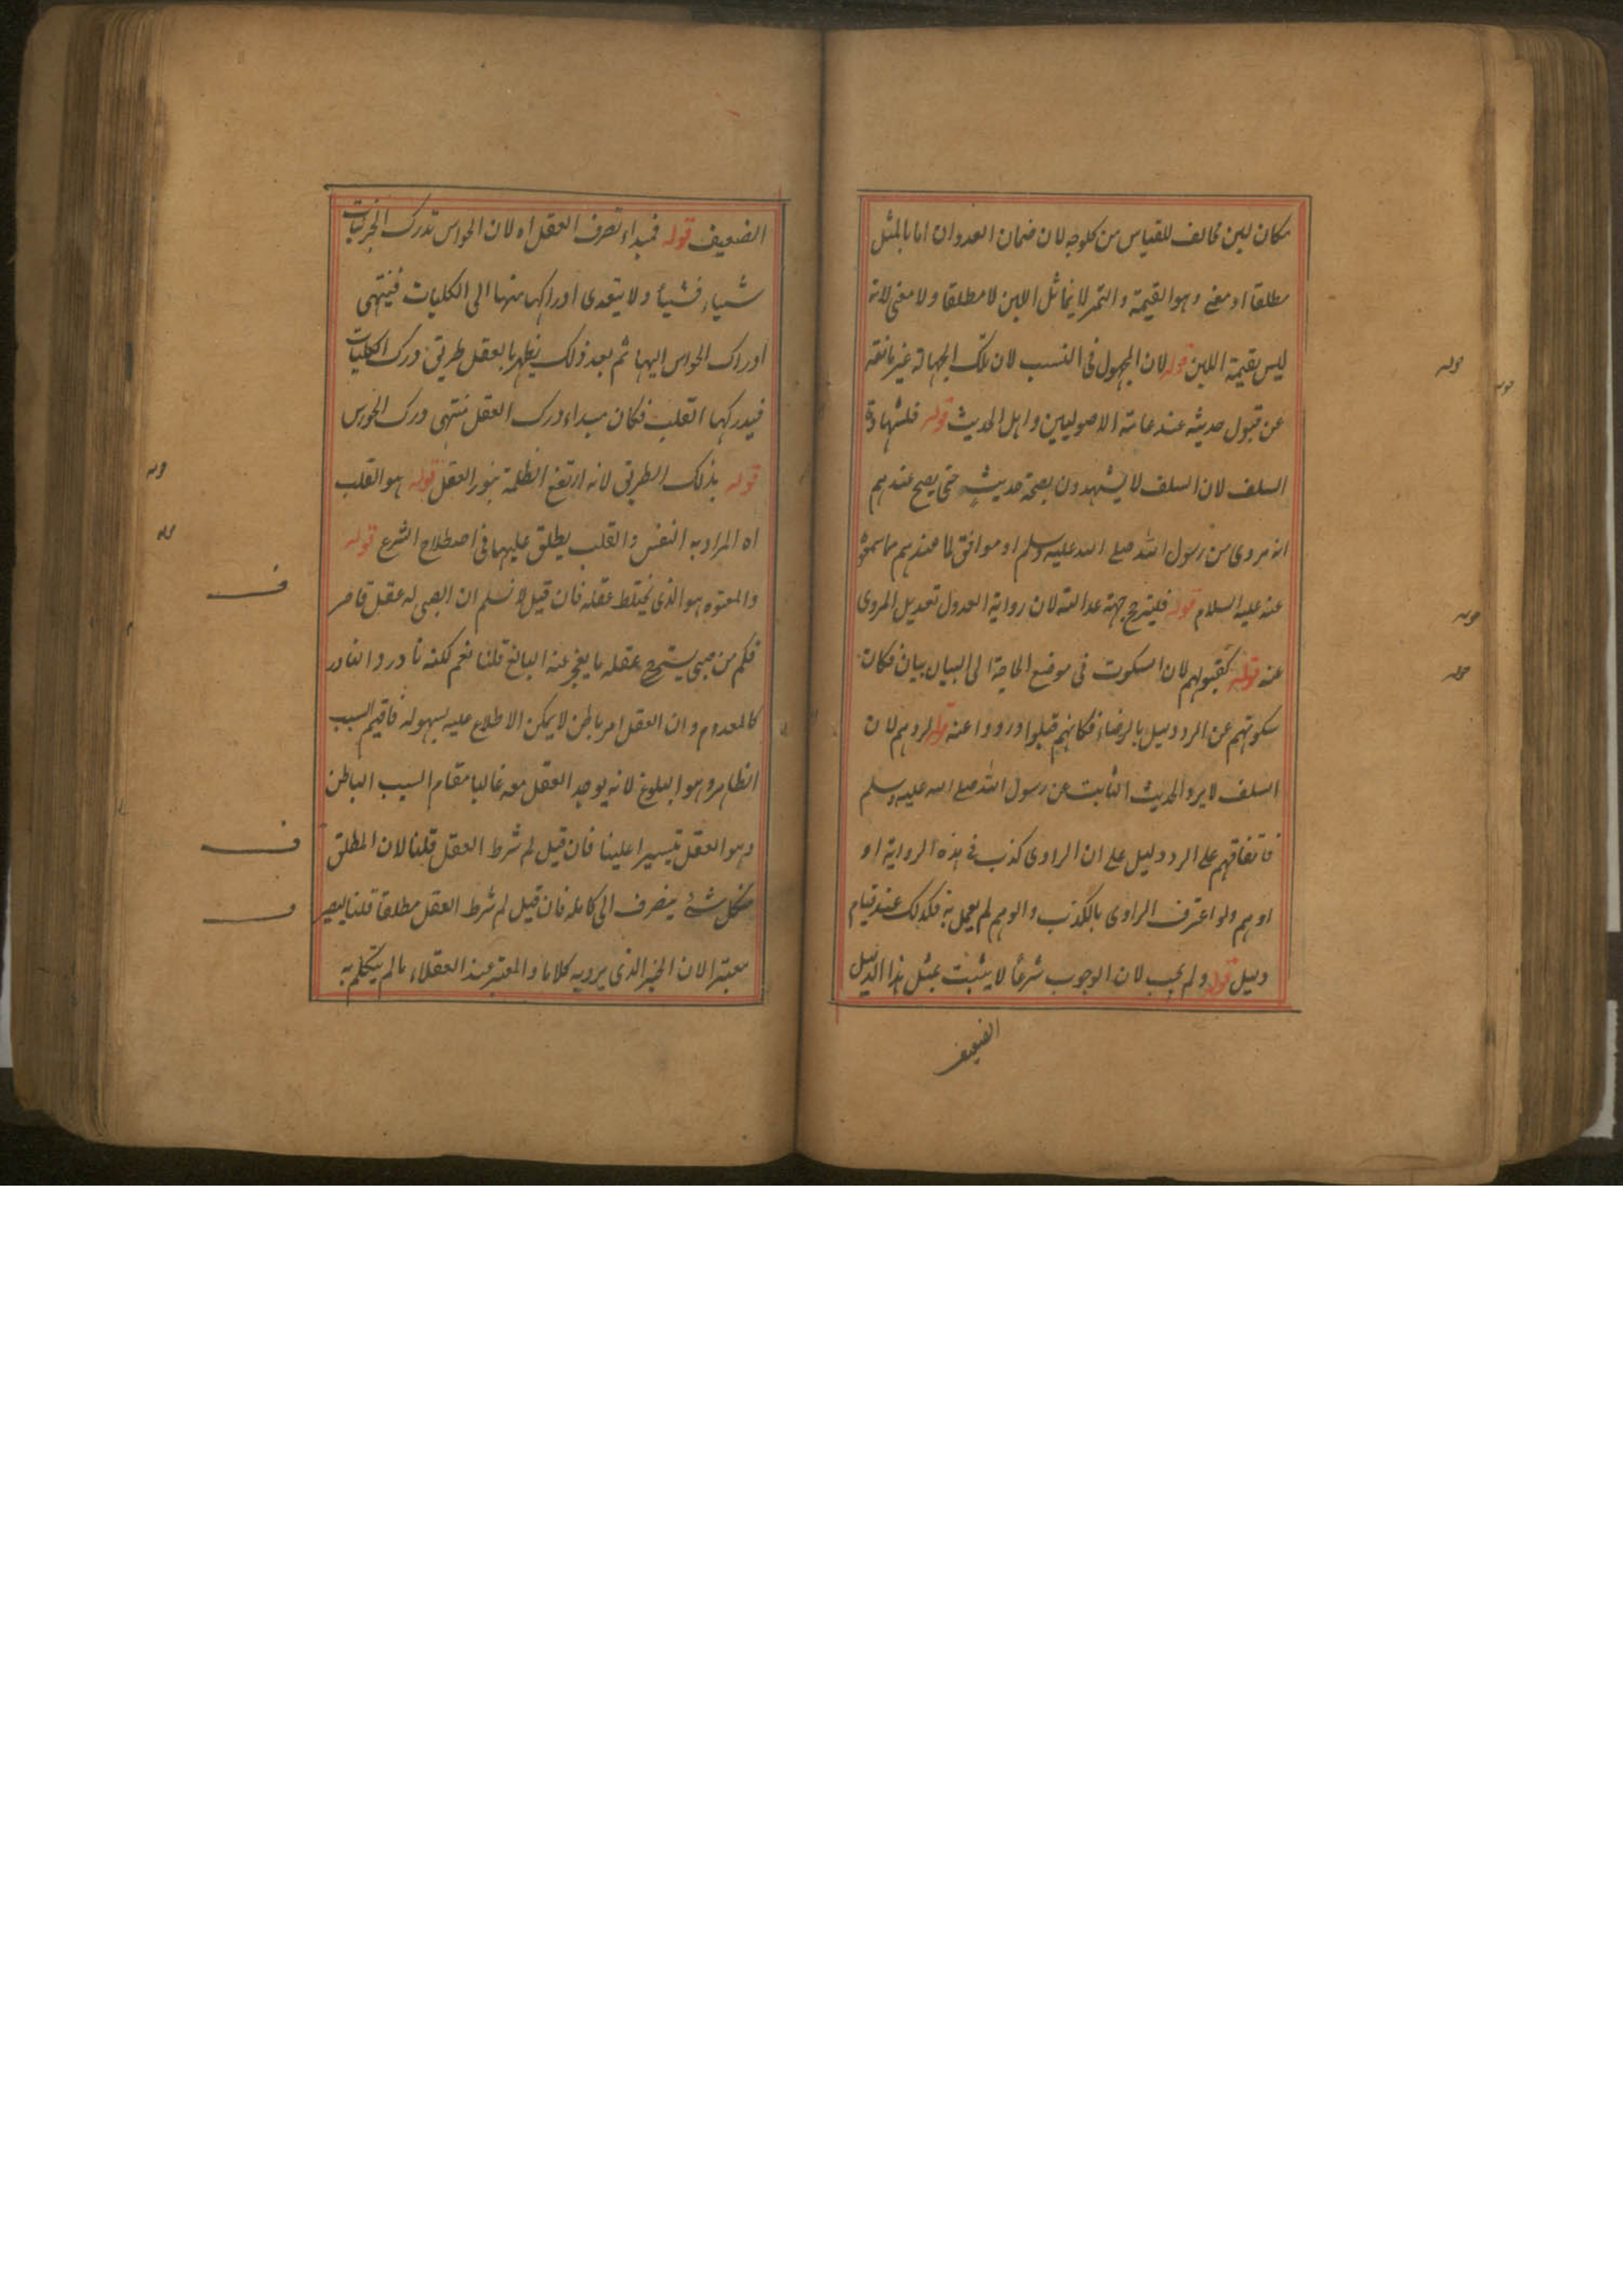 مكان لبن مخالف للقياس من كل وجه لان ضمان العدوان اما بالمثل
مطلقا او معنى وهو القيمة والتمر لا يماثل اللبن لا مطلقا ولا معنى لانه
ليس بقيمة اللبن قوله لان المجهول فى النسب لان تلك الجهالة غير مانعة
عن قبول حديثه عند عامة الاصوليين واهل الحديث قوله فلشهادة
السلف لان السلف لا يشهدون بصحة حديث حتى يصح عندهم
انه مروى من رسول الله صلى الله عليه وسلم او موافق لما عندهم مما سمعوه
عنه عليه السلام قوله فليترجح جهة عدالته لان رواية العدول تعديل المروى
عنه قوله كقبولهم لان السكوت فى موضع الحاجة الى البيان بيان فكان
سكوتهم عن الرد دليل بالرضاء فكانهم قبلوا ورووا عنه قوله لردهم لان
السلف لا يرد الحديث الثابت عن رسول الله صلى الله عليه وسلم
فاتفاقهم على الرد دليل على ان الراوى كذب فى هذه الرواية او
اوهم ولو اعترف الراوى بالكذب والوهم لم يعمل به فكذلك عند قيام
دليل قوله ولم يجب لان الوجوب شرعا لا يثبت بمثل هذا الدليل
الضعيف
الضعيف قوله فمبداء تصرف العقل اه لان الحواس تدرك الجزئيات
شياء فشيأ ولا يتعدى ادراكها منها الى الكليات فينتهى
ادراك الحواس اليها ثم بعد ذلك يظهر بالعقل طريق درك الكليات
فيدركها القلب فكان مبداء درك العقل منتهى درك الحواس
قوله بذلك الطريق لانه ارتفع الظلمة بنور العقل قوله هو القلب
اه المراد به النفس والقلب يطلق عليهما فى اصطلاح الشرع قوله
والمعتوه هو الذى يختلط عقله فان قيل لا نسلم ان الصبى له عقل قاصر
فكم من صبى يستخرج عقله ما يعجز عنه البالغ قلنا نعم لكنه نادر والنادر
كالمعدوم وان العقل امر باطن لا يمكن الاطلاع عليه بسهولة فاقيم السبب
الظاهر وهو البلوغ لانه يوجد العقل معه غالبا مقام السبب الباطن
وهو العقل تيسيرا علينا فان قيل لم شرط العقل قلنا لان المطلق
من كل شئ ينصرف الى كامله فان قيل لم شرط العقل مطلقا قلنا ليصير
معتبرا لان الخبر الذى يرويه كلاما والمعتبر عند العقلاء ما لم يتكلم به